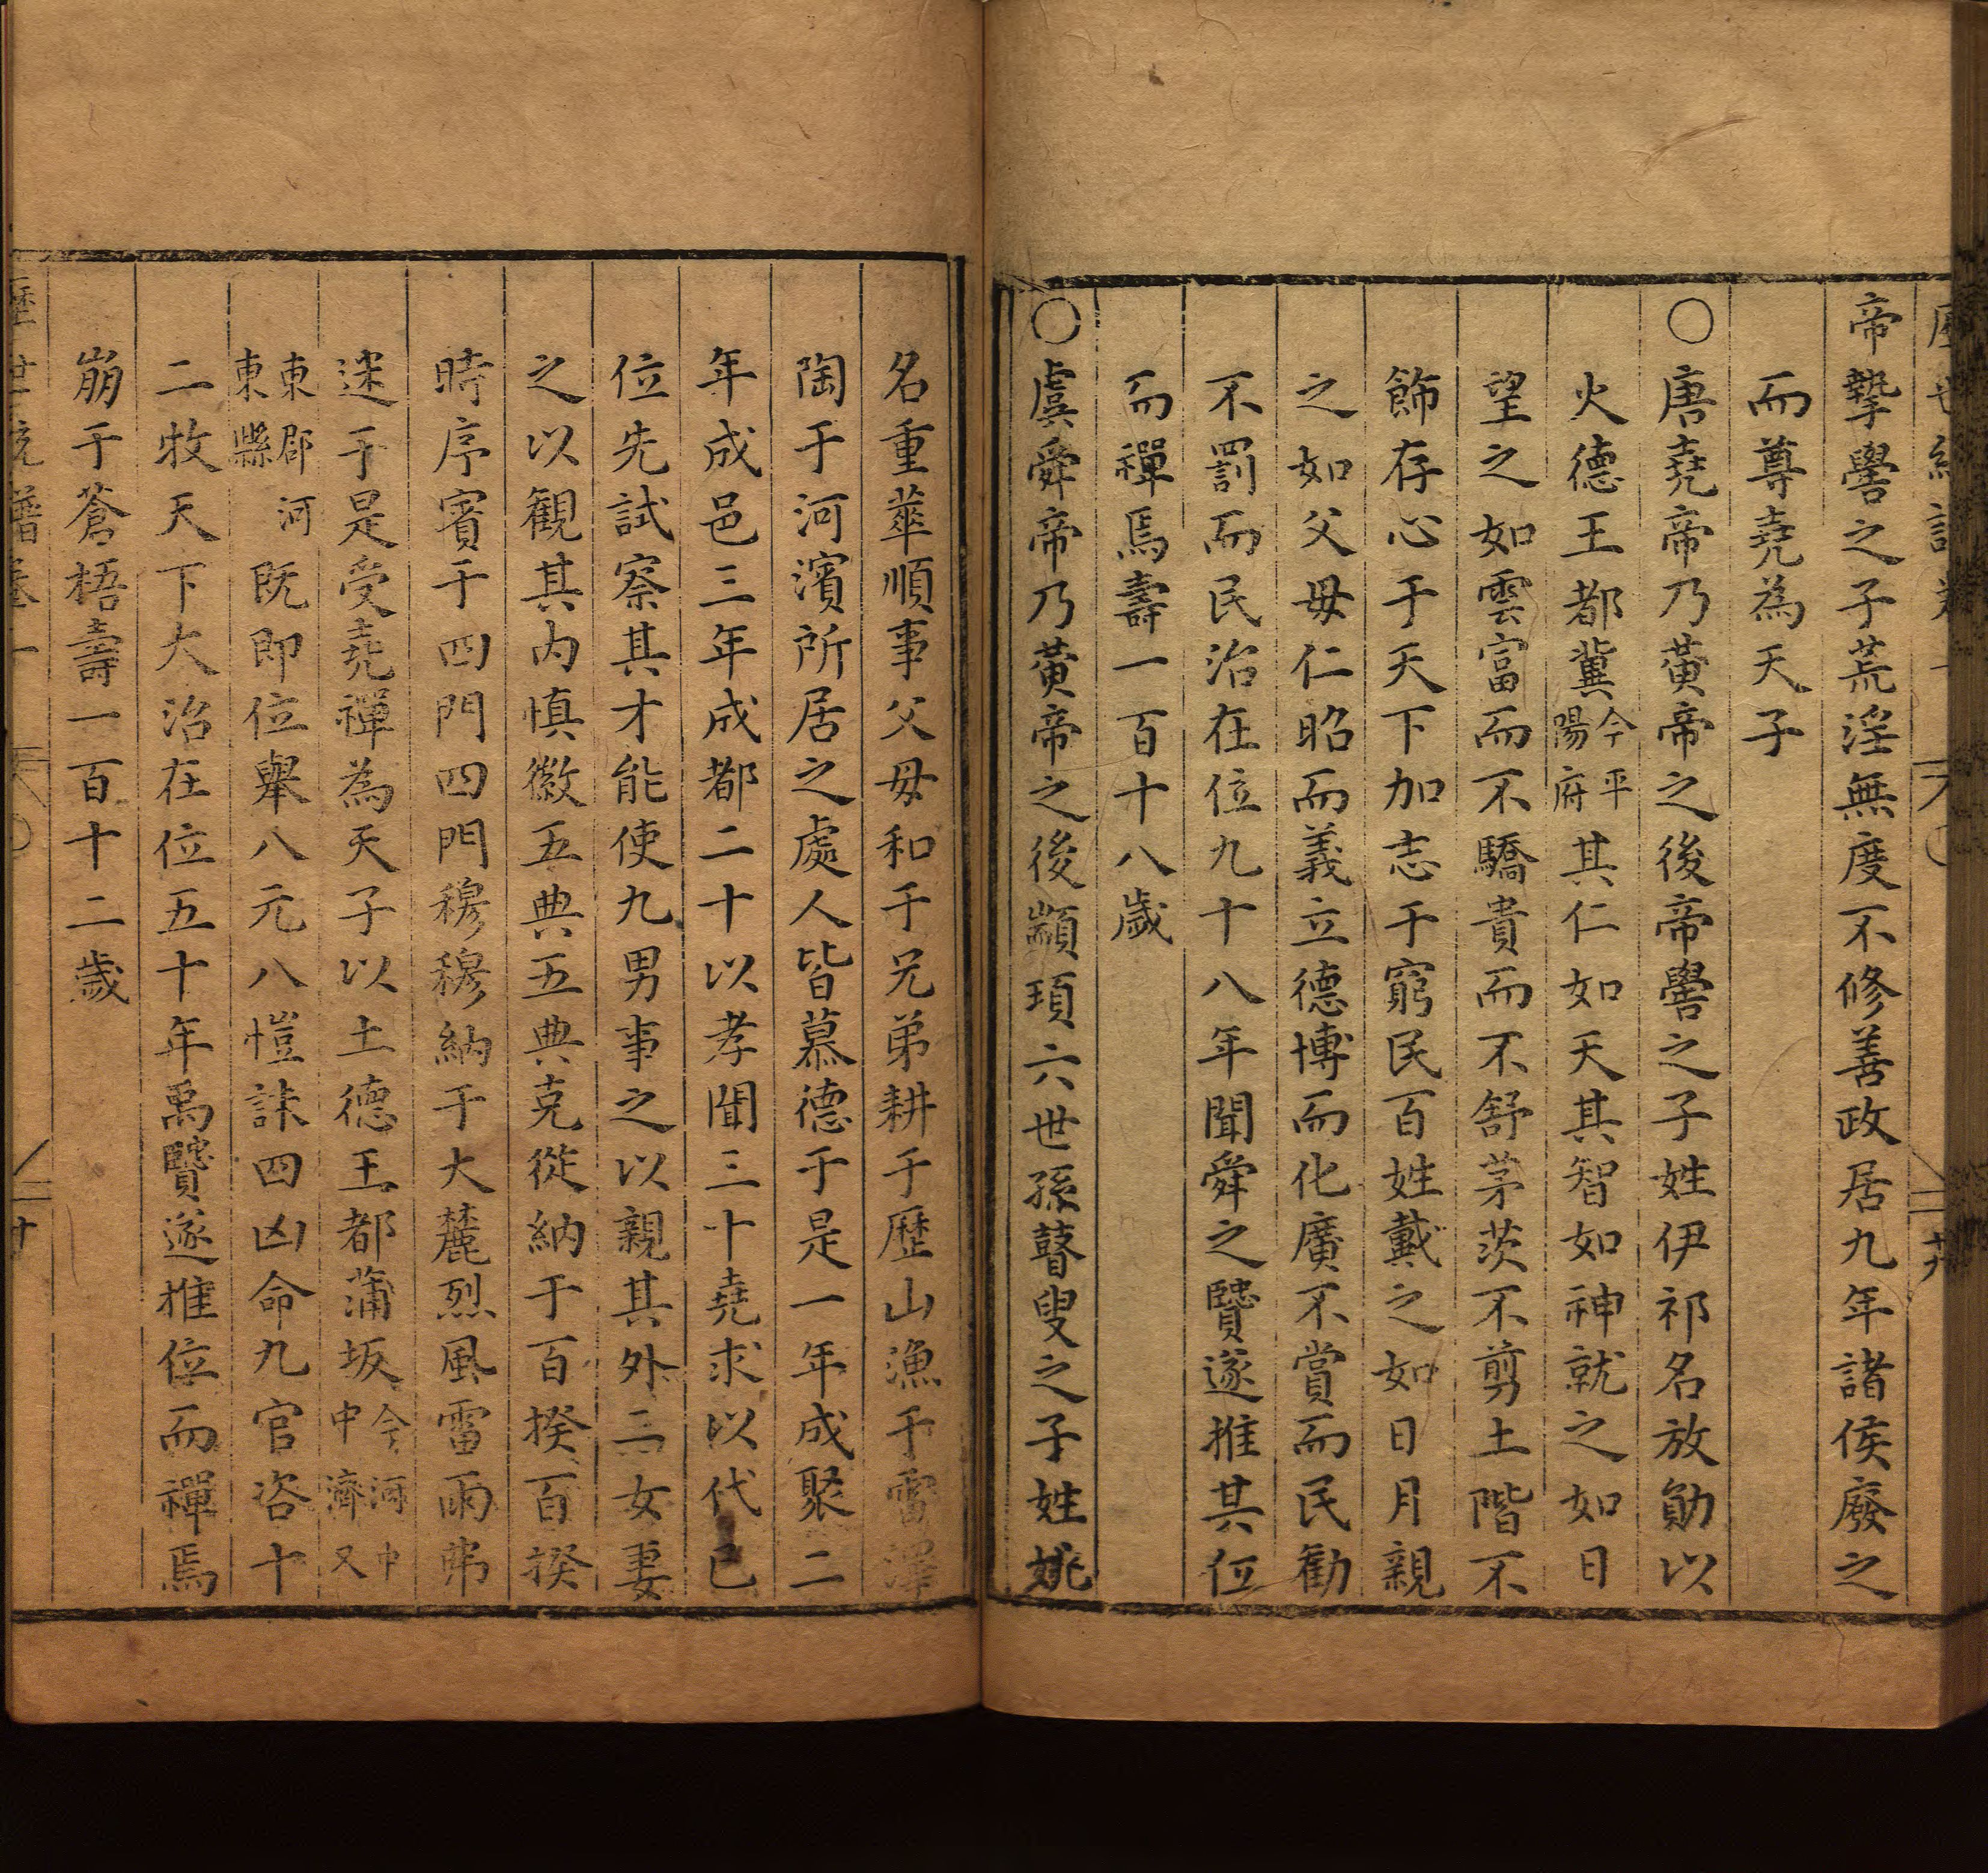 帝摯嚳之子荒淫無度不修善政居九年諸侯廢之
而尊堯為天子
〇唐堯帝乃黃帝之後帝嚳之子姓伊祁名放勛以
火德王都冀今平陽府其仁如天其智如神就之如日
望之如雲富而不驕貴而不舒茅茨不剪土階不
飾存心于天下加志于窮民百姓戴之如日月親
之如父母仁昭而義立德博而化廣不賞而民勸
不罰而民治在位九十八年聞舜之贒遂推其位
而禪焉壽一百十八歲
〇虞舜帝乃黃帝之後顓頊六世孫瞽叟之子姓姚
名重華順事父母和于兄弟耕于歷山漁于雷澤
陶于河濱所居之處人皆慕德于是一年成聚二
年成邑三年成都二十以孝聞三十堯求以代己
位先試察其才能使九男事之以親其外二女妻
之以觀其內慎徽五典五典克從納于百揆百揆
時序賓于四門四門穆穆納于大麓烈風雷雨弗
迷于是受堯禪為天子以土德王都蒲坂今河中中濟又
東郡河東縣既即位舉八元八愷誅四凶命九官咨十
二牧天下大治在位五十年禹贒遂推位而禪焉
崩于蒼梧壽一百十二歲